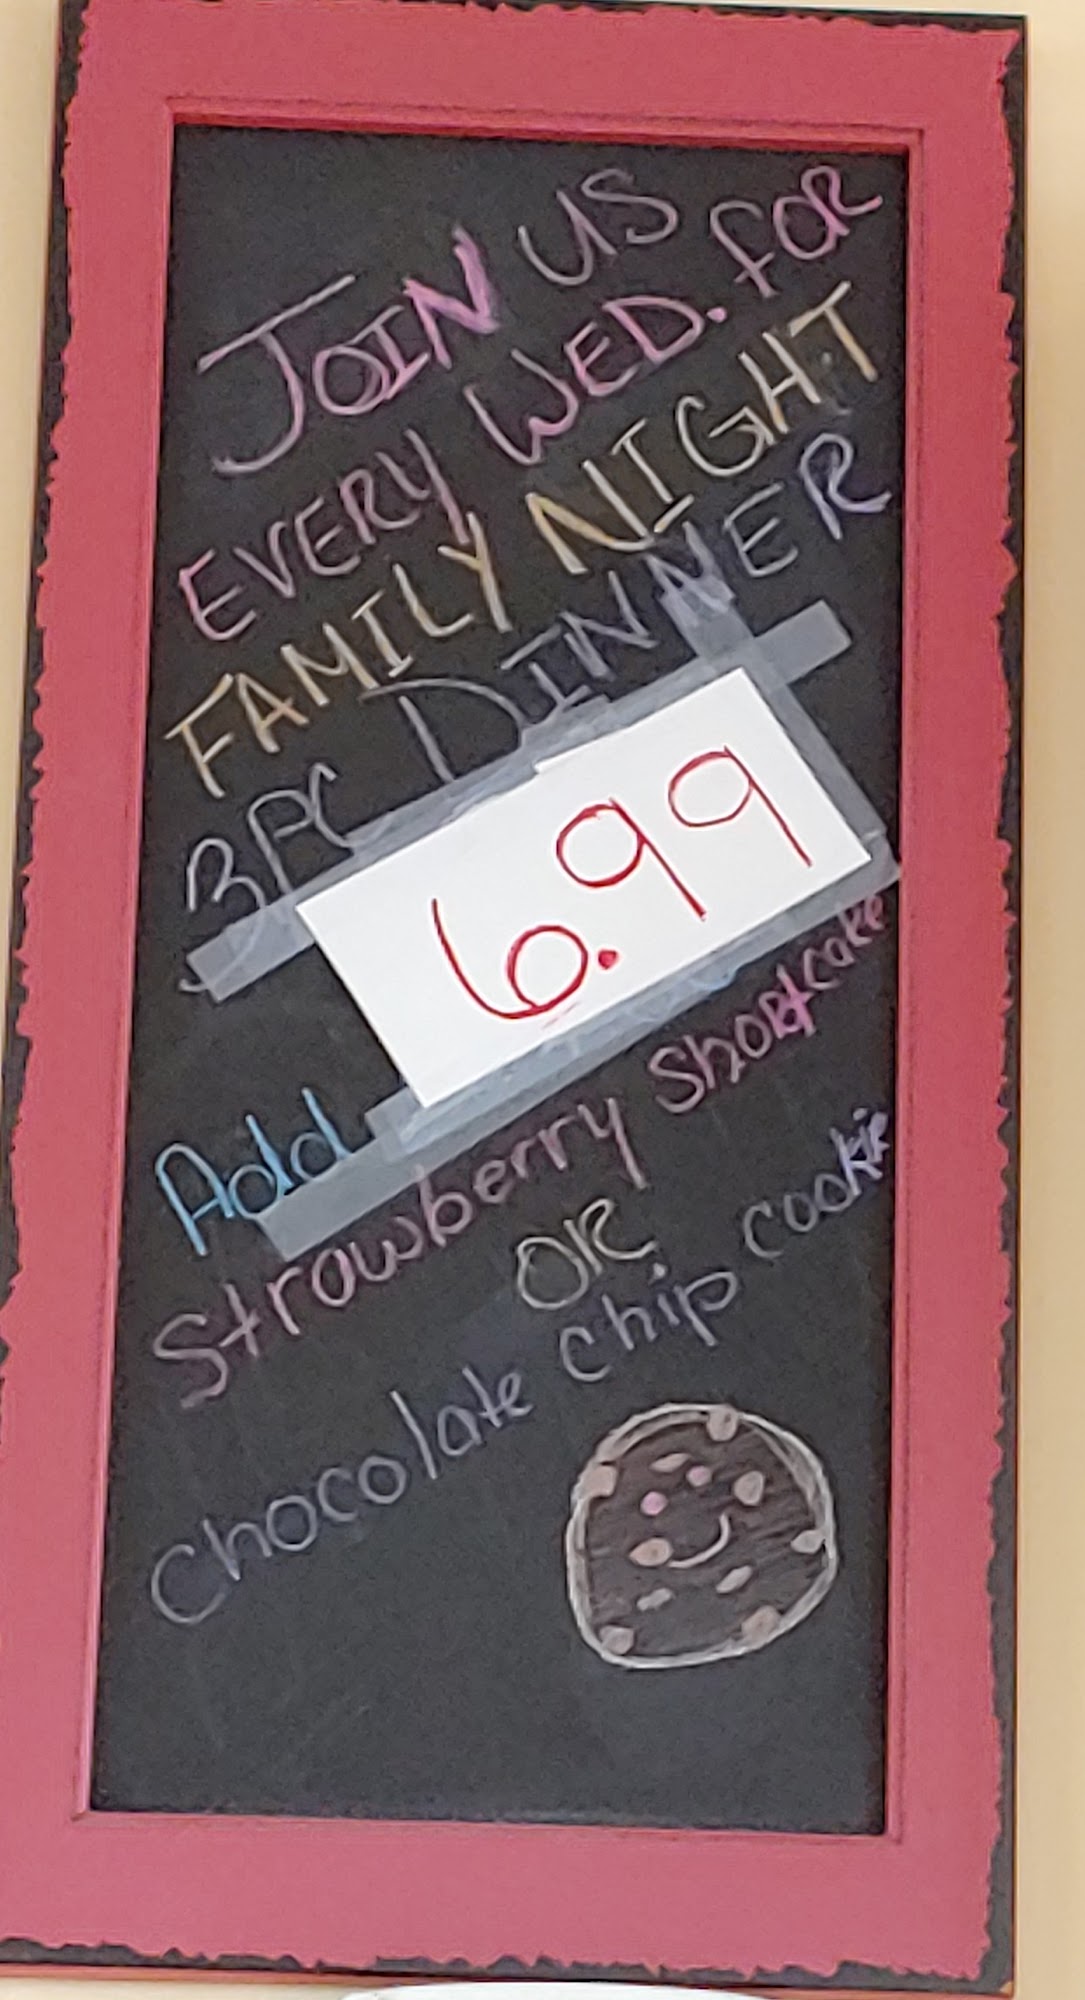 JOIN US
EVERY WED. for
FAMILY NIGHT
3PC DINNER
6.99
Add
Strawberry Shortcake
OR
Chocolate chip cookie